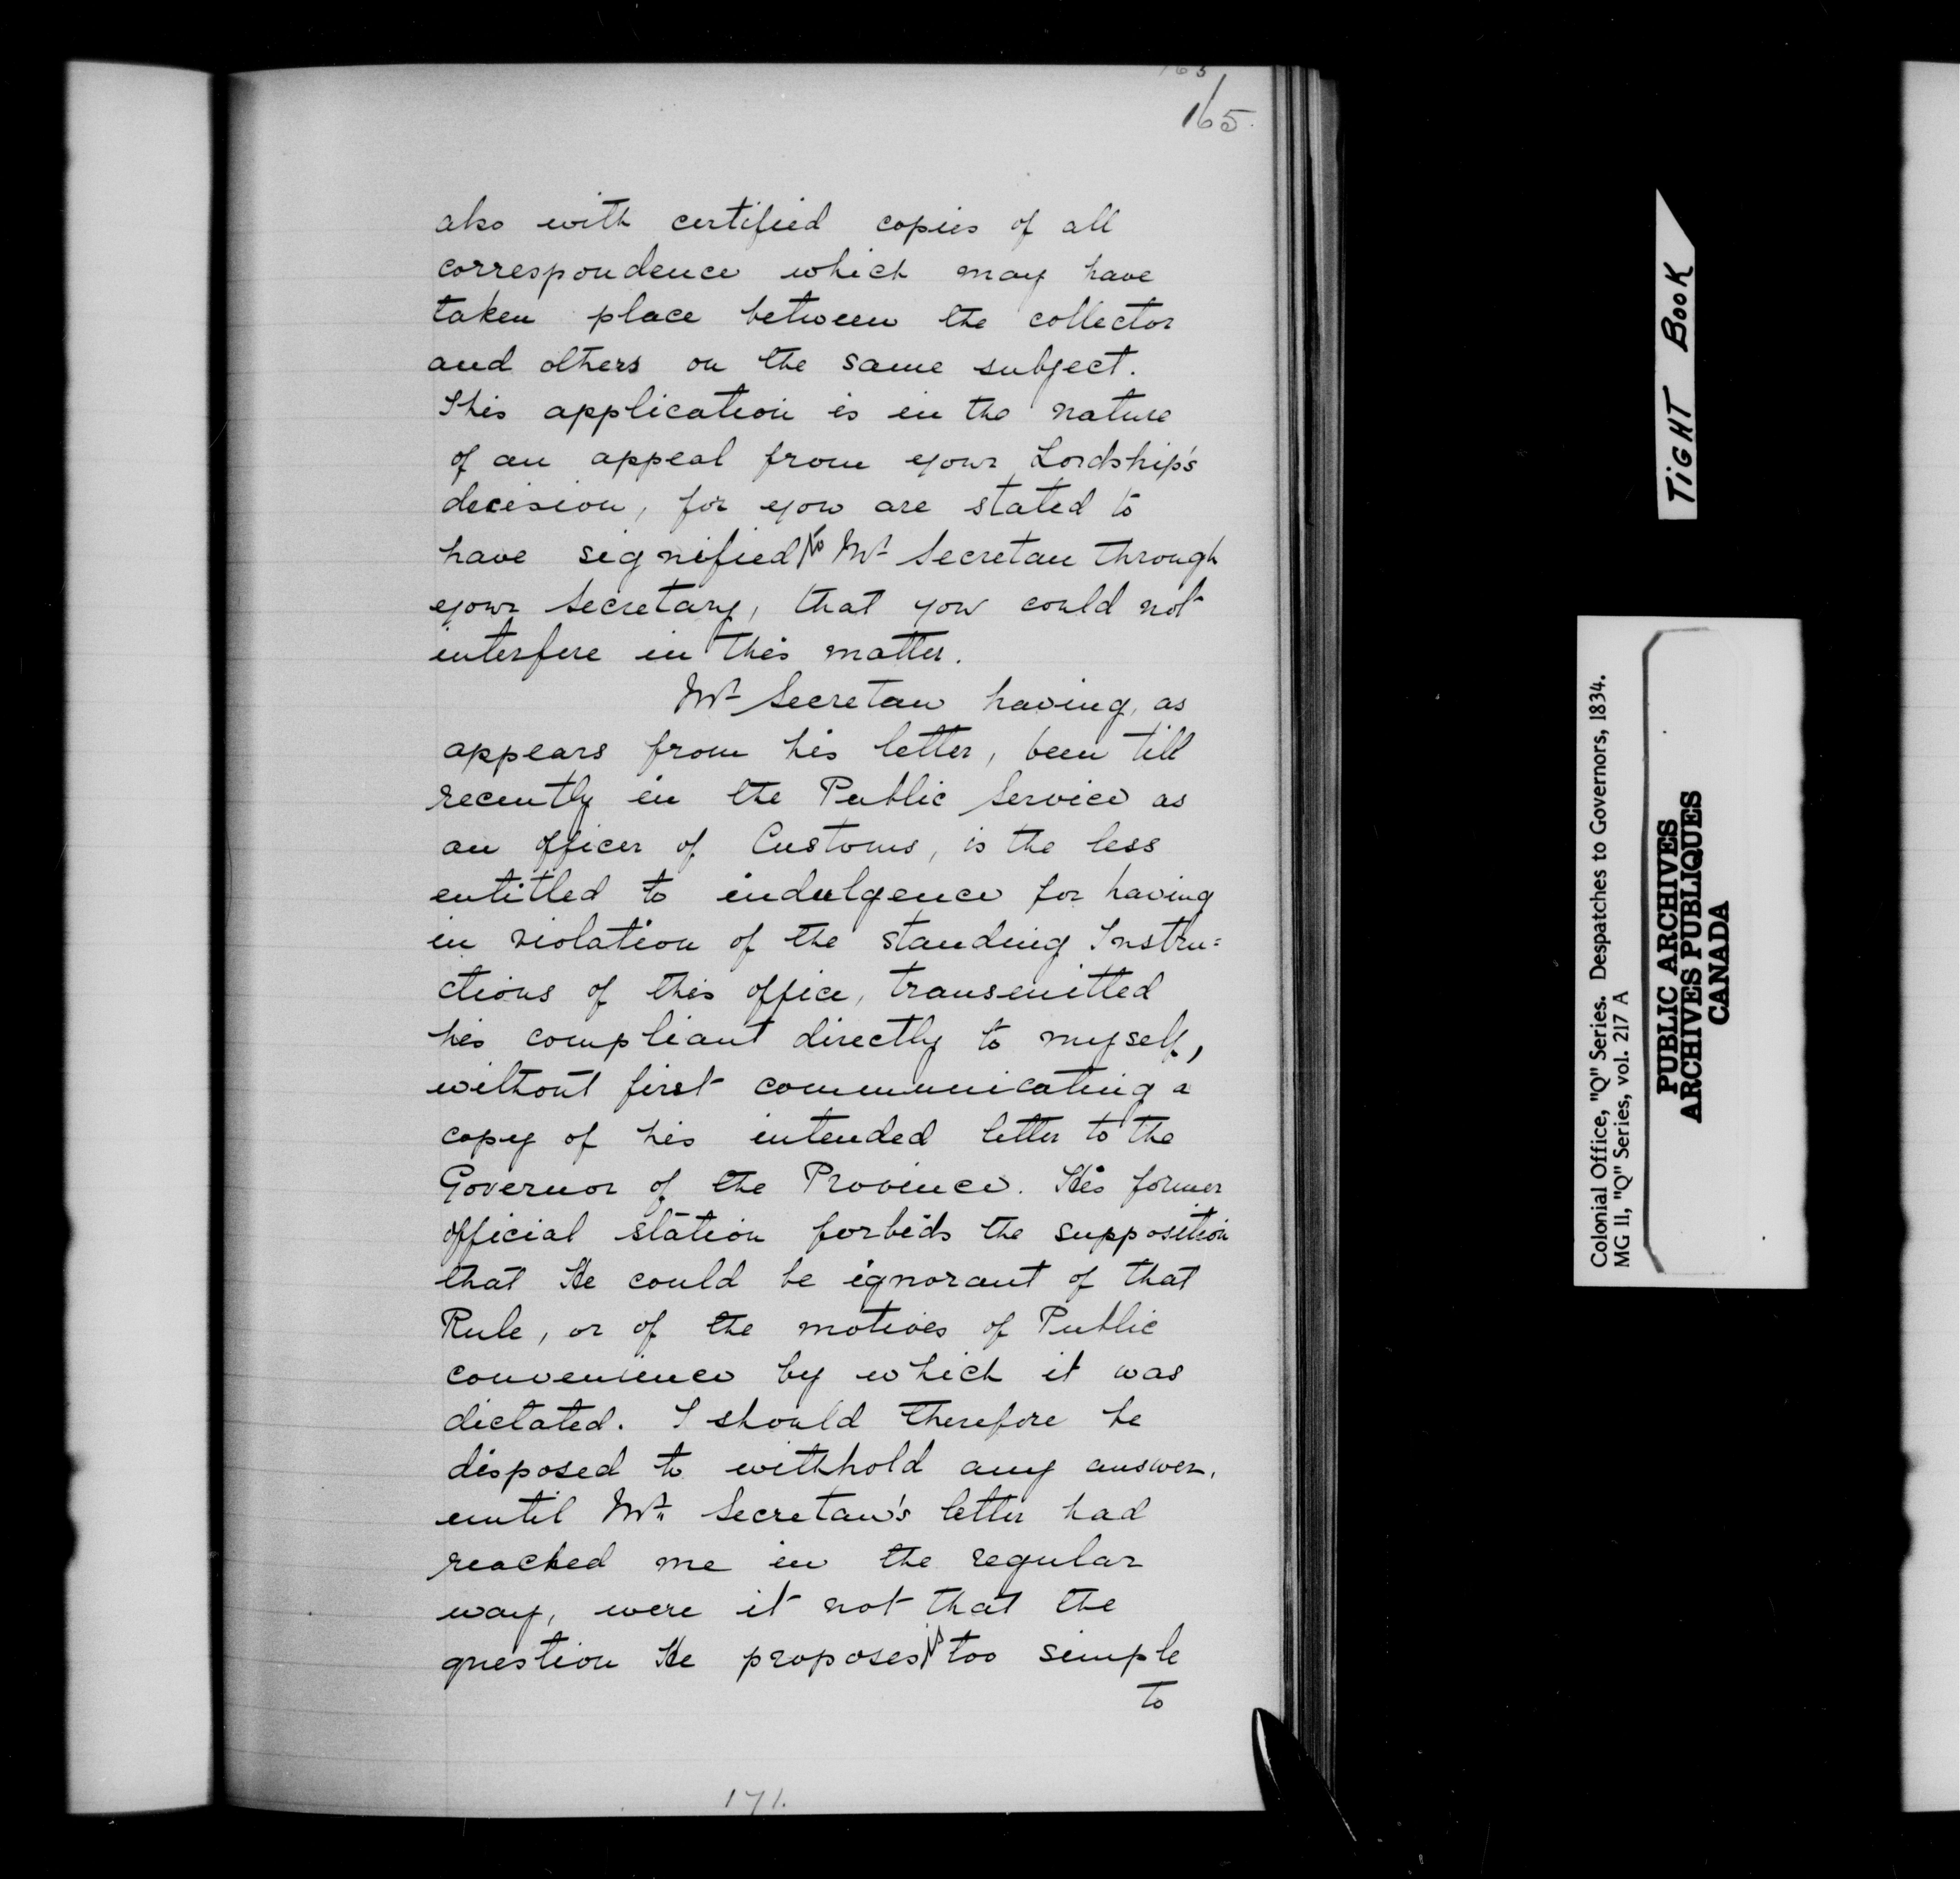 165
165.
also with certified copies of all
correspondence which may have
taken place between the collector
and others on the same subject.
This application is in the nature
of an appeal from your Lordship's
decision, for you are stated to
have signified to Mr Secretan through
your Secretary, that you could not
interfere in this matter.
Mr Secretan having, as
appears from his letter, been till
recently in the Public Service as
an officer of Customs, is the less
entitled to indulgence for having
in violation of the standing Instru=
ctions of this office, transmitted
his compliant directly to myself,
without first communicating a
copy of his intended letter to the
Governor of the Province. His former
official station forbids the supposition
that He could be ignorant of that
Rule, or of the motives of Public
convenience by which it was
dictated. I should therefore be
disposed to withhold any answer,
until Mr. Secretan's letter had
reached me in the regular
way, were it not that the
question He proposes is too simple
to
171.
TIGHT BOOK
Colonial Office, "Q" Series. Despatches to Governors, 1834.
MG 11, "Q" Series, vol. 217 A
PUBLIC ARCHIVES
ARCHIVES PUBLIQUES
CANADA